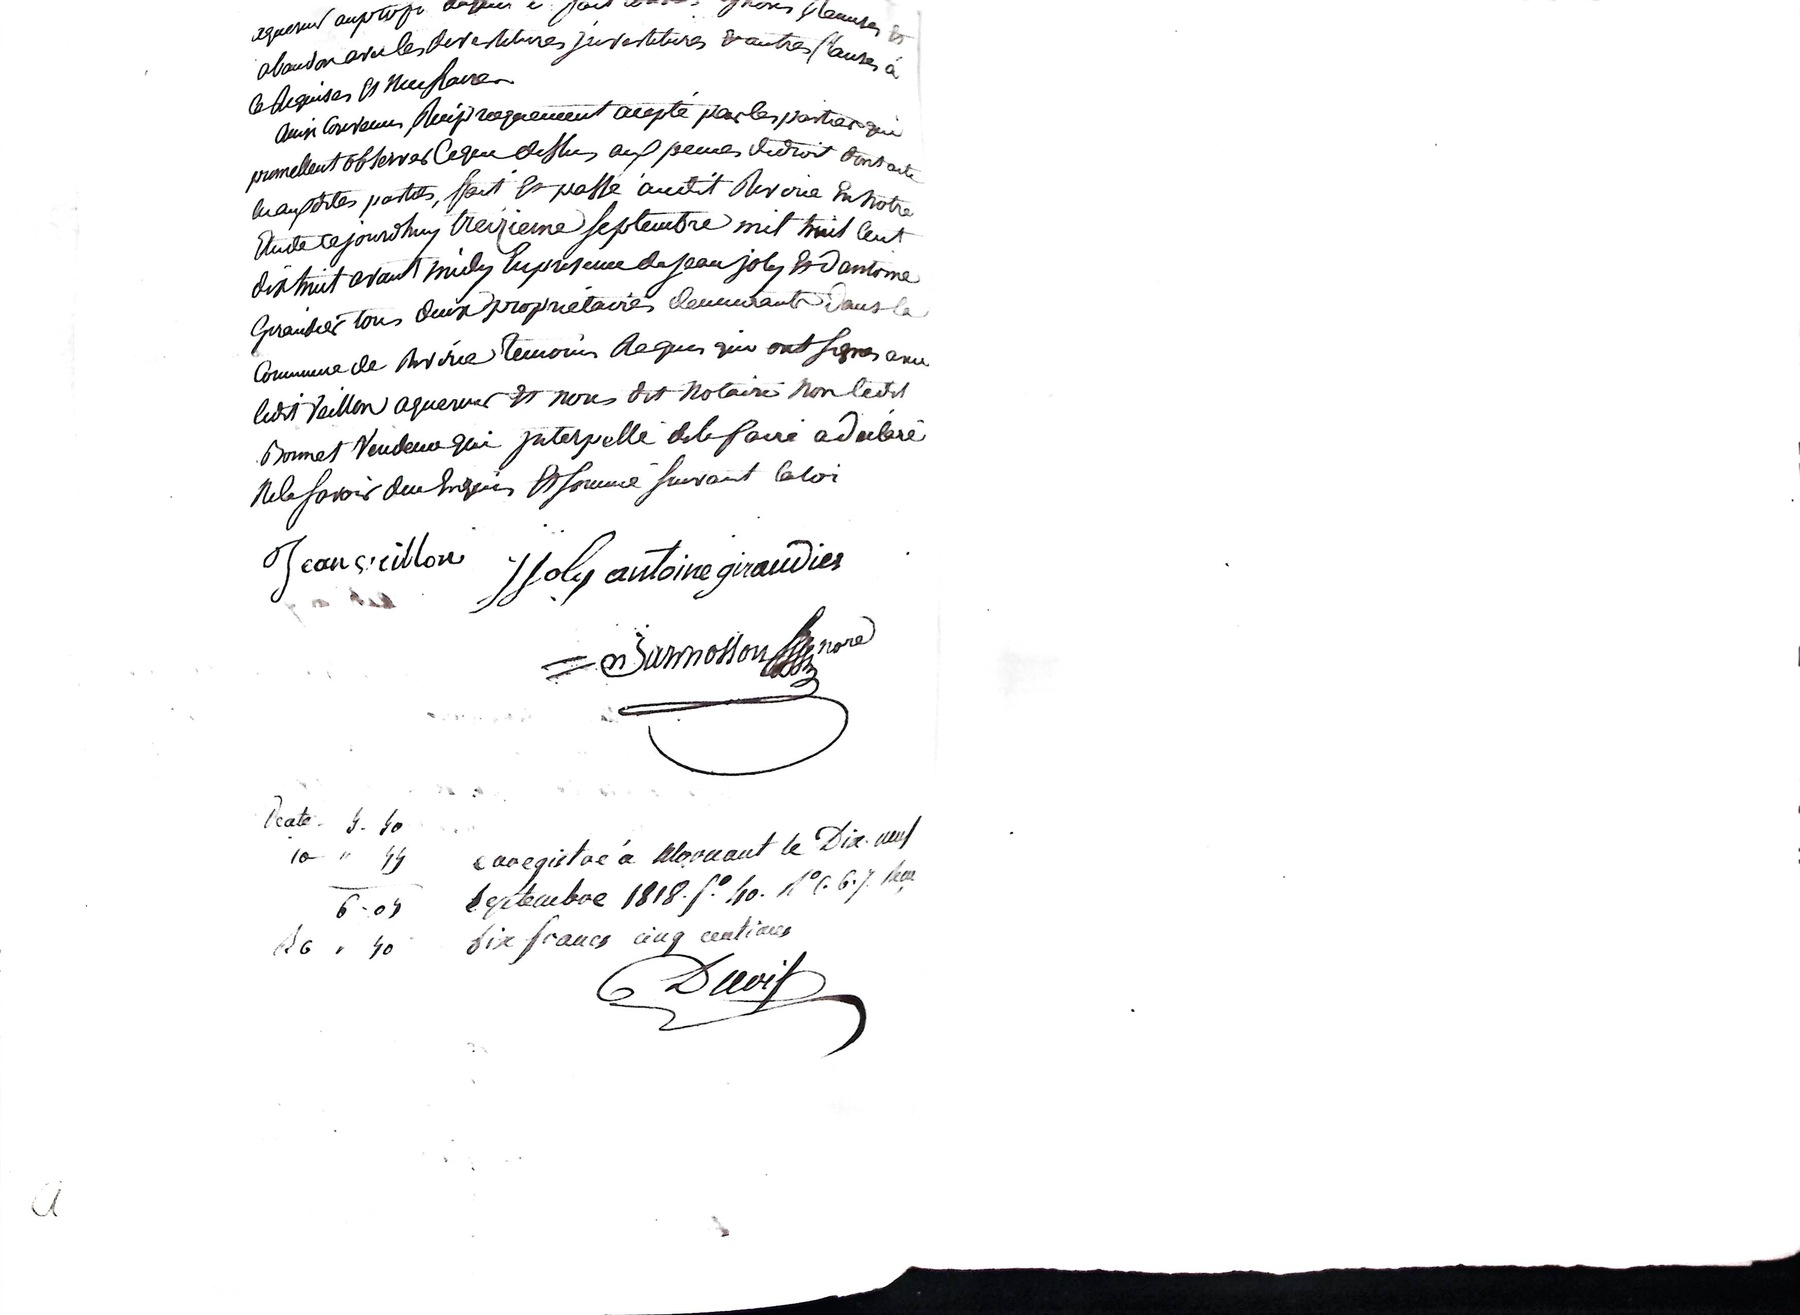 aquereur au profit duquel il fait toutes
abandon avec les devestitures jnvestitures & autres Clauses à
ce Requises Et Necessaires
Ainsi Convenu Réciproquement accepté par les parties qui
promettent observer Ceque dessus aux peines dedroit dont acte
auxdites parties, fait Et passé audit Riverie En notre
Etude cejourdhuy treizieme Septembre mil huit Cent
dix huit avant midy En presence de Jean joly Et d'antoine
Giraudier tous deux propriétaires demeurants dans la
Commune de Riverie temoins Requis qui ont Signés avec
ledit Veillon aquereur Et nous dit Notaire Non ledit
Bonnet Vendeur qui jnterpellé dele faire a Déclaré
Nele Savoir dece Enquis Et Sommé Suivant la loi
Jean veillon J Joly antoine giraudier
nore
Recate 40
10 " 
6 - 
" 40
enregistré à Mornant le Dix-neuf
septembre 1818. f.° 40. R° C. 6.7. Reçu
six francs cinq centimes